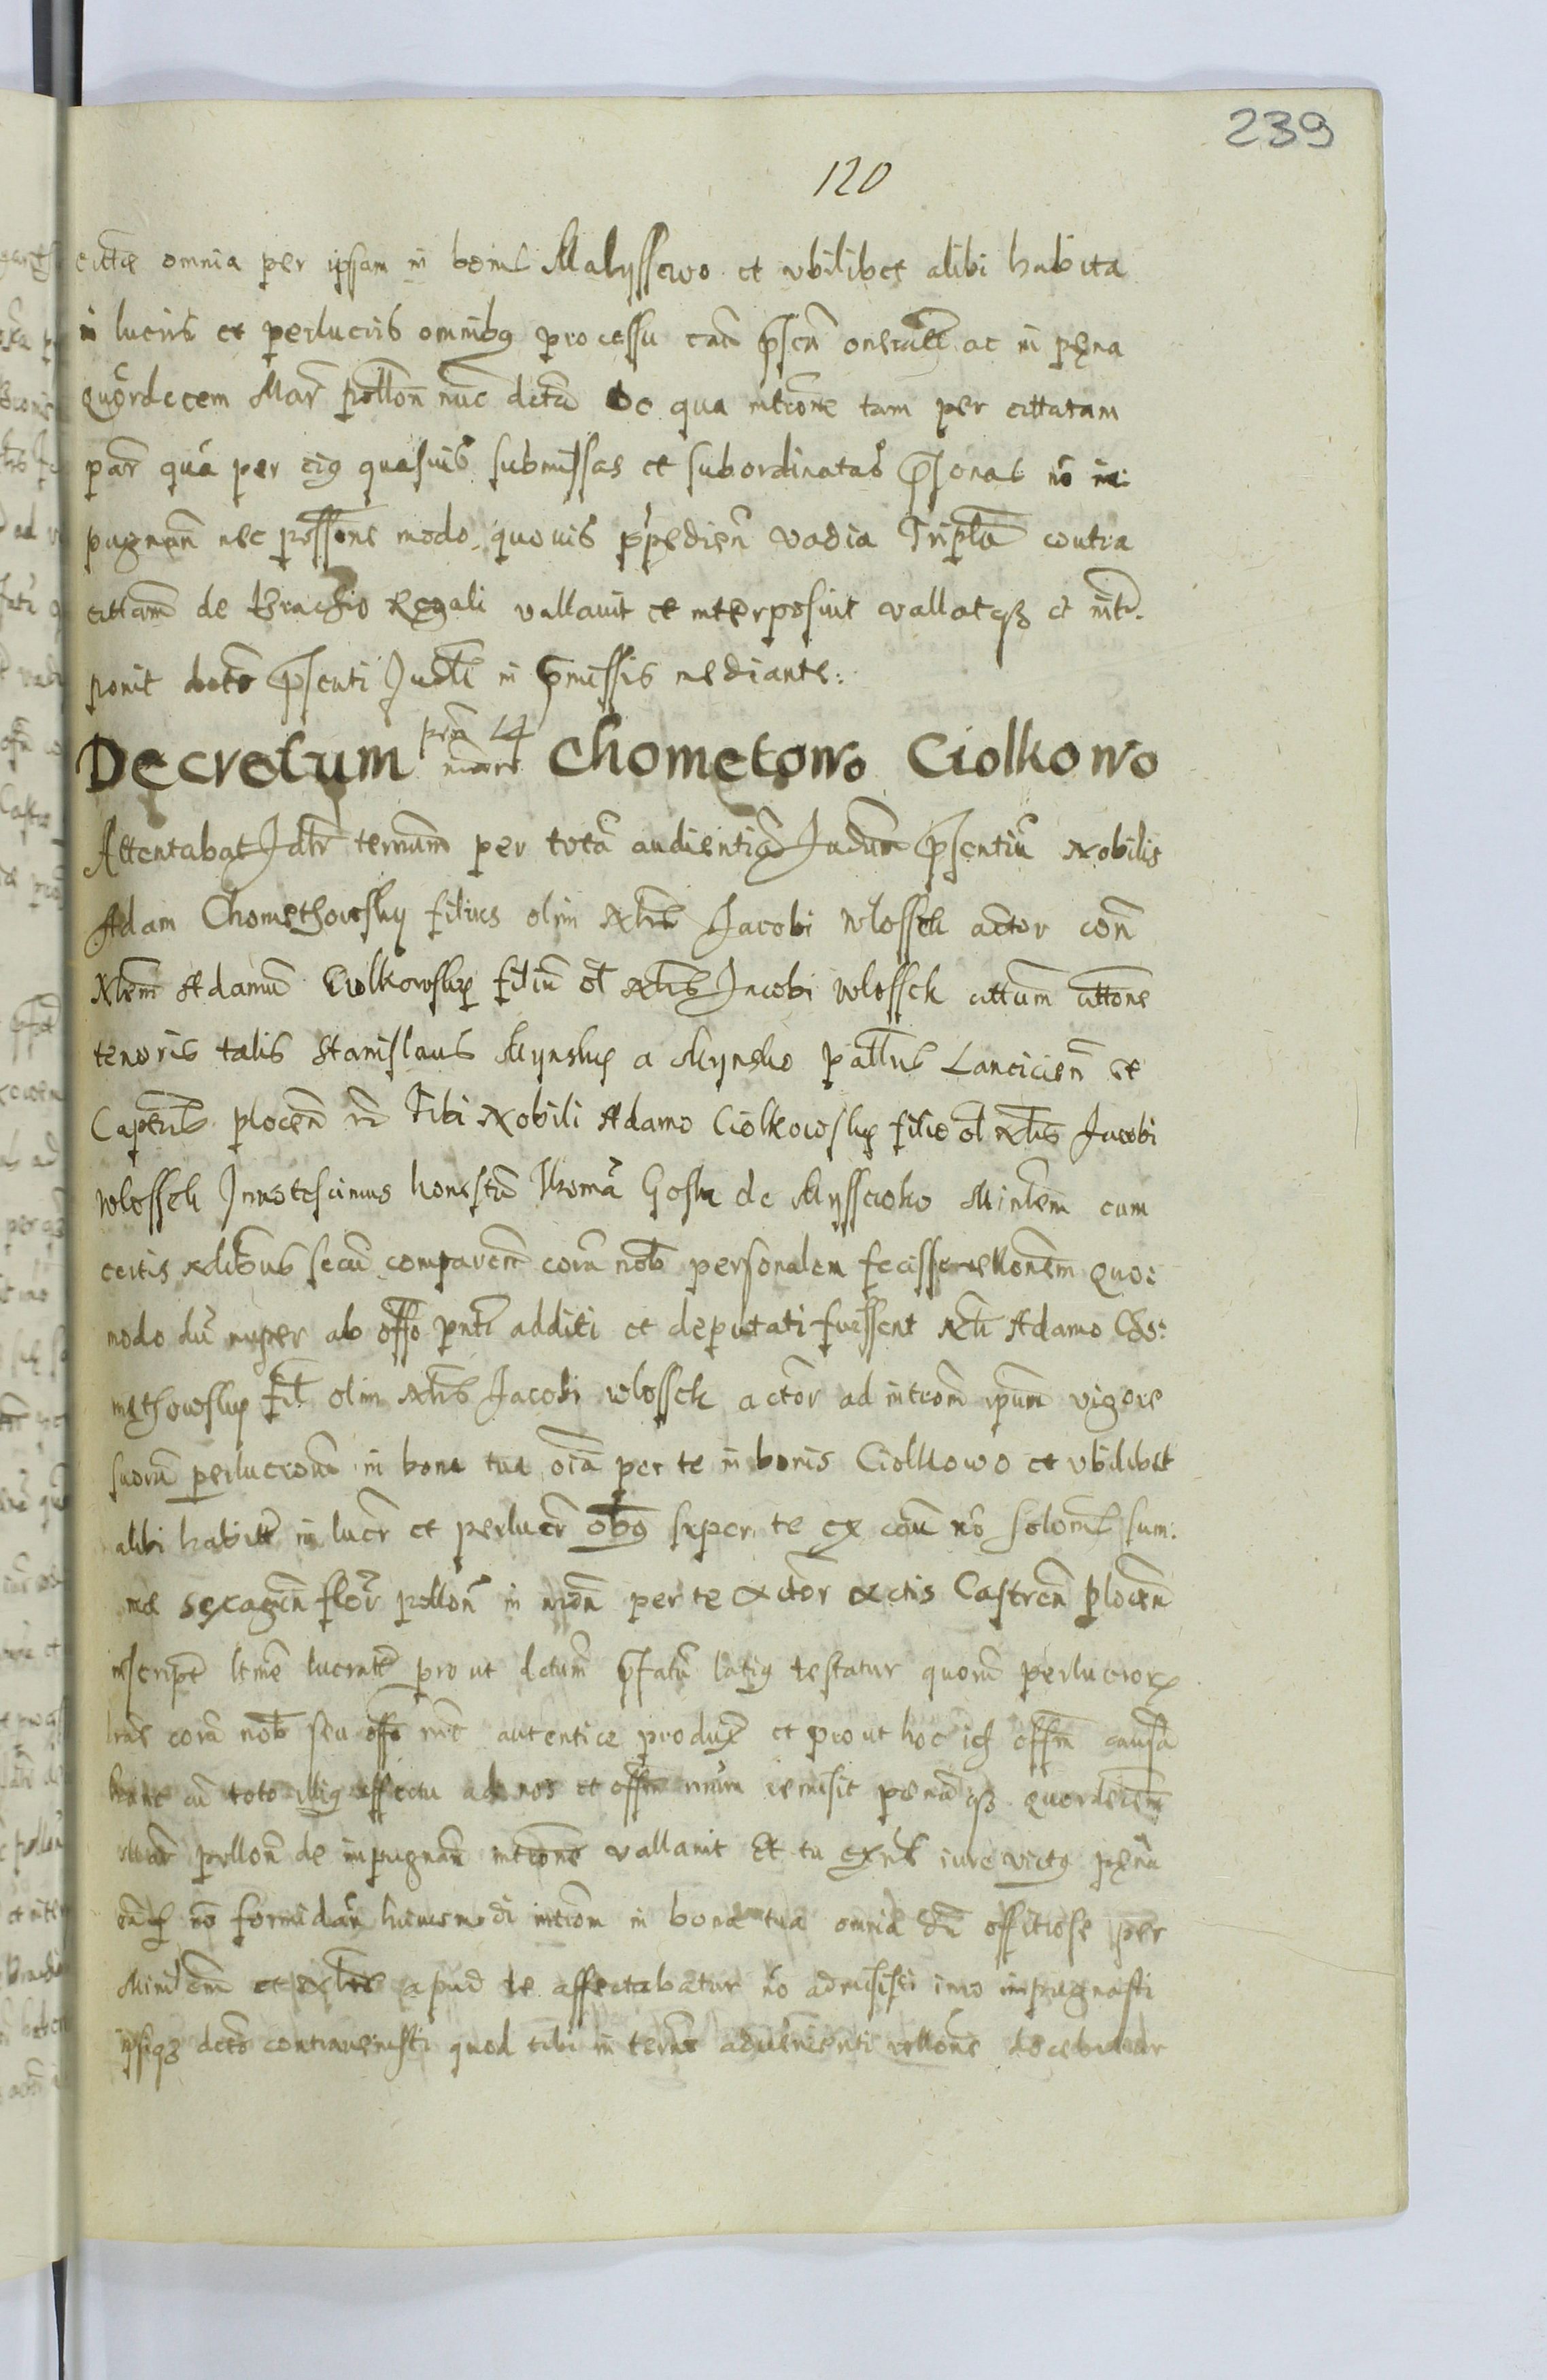 239
120
cittae omnia per ipsam in bonis Malyssewo et vbilibet alibi habita
in lucris et perlucris omnibq processu eam pscn oneratt ac in pena
quordecem Mar pollon nunc dcta De qua intione tam per cittatam
par qua per eig quasuis submissas et subordinatas psonas no im:
pugnan nec possone modo quouis ppedien vadia Tripla contra
cittam de Brachio Regali vallauit et interposuit vallatqz et intr
ponit dcto psenti Judti in pmissis mediante.
Decretum pen 14 marc Chometowo Ciolkowo
Attentabat Jdtr termum per tota audientia Judum psentiu Nobilis
Adam Chomethowsky filius olim Nlis Jacobi Wlossek actor con
Nlem Adamu Ciolkowsky filiu ol Nlis Jacobi Wlossek cittum cittone
tenoris talis Stanislaus Mynsky a Mynsko pallus Lancicien et
Capeus plocen n Tibi Nobili Adamo Ciolkowsky filio ol Nlis Jacobi
Wlossek Innotescimus honestu Thoma Goska de Myssewko Minlem cum
certis Nlibus secu comparen cora nob personalem fecisse rellonem quo:
modo du nuper ab offo pnti additi et deputati fuissent Nli Adamo Cho:
methowsky fil olim Nlis Jacobi Wlossek actor ad intiom ipum vigore
suoru perlucrom in bona tua oia per te in bonis Ciolkowo et vbilibet
alibi habitt in lucr et perlucr obq super te ex cau no solomis sum:
me sexagin flor pollon in nion per te Actor Actis Castren plocen
inscript ltme lucratt pro ut dctum psatu latig testatur quoru perlucror
lras cora nob seu offo nro autentice produx et pro ut hoc id offm causa
hanc cu toto illig effectu ad nos et offm nrum remisit penaqz quordecem
Mar pollon de impugnan intione vallauit Et tu exns iure victq pena
eaq no formidan huiusmodi intiom in bona tua omnia du offitiose per
Minlem et Nles apud te affectabatur no admisisti imo impugnasti
ipsiqz dcto contrauenisti quod tibi in termo aduenienti rellone docebitur